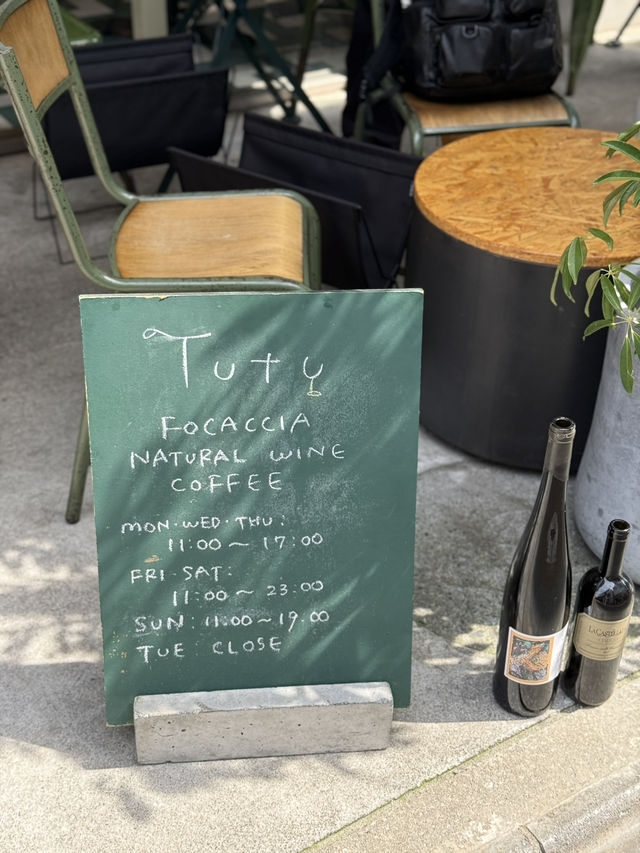 Tuty
FOCACCIA
NATURAL WINE
COFFEE
MON·WED·THU:
11:00～17:00
FRI·SAT:
11:00～23:00
SUN: 11:00～19:00
TUE: CLOSE